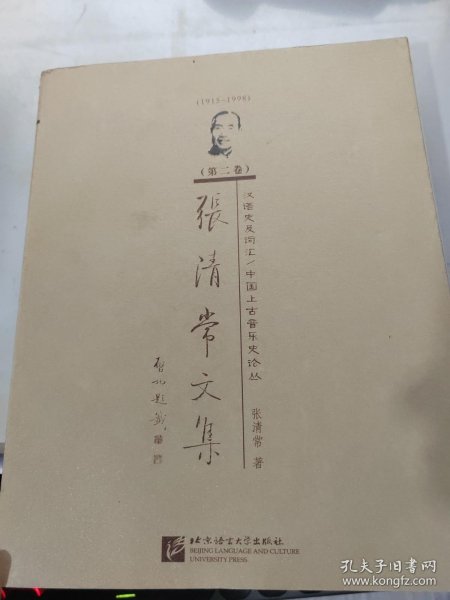 (1915—1998)
(第二卷)
張清常文集
汉语史及词汇/中国上古音乐史论丛
张清常 著
启功题签
北京语言大学出版社
BEIJING LANGUAGE AND CULTURE
UNIVERSITY PRESS
孔夫子旧书网
www.kongfz.com